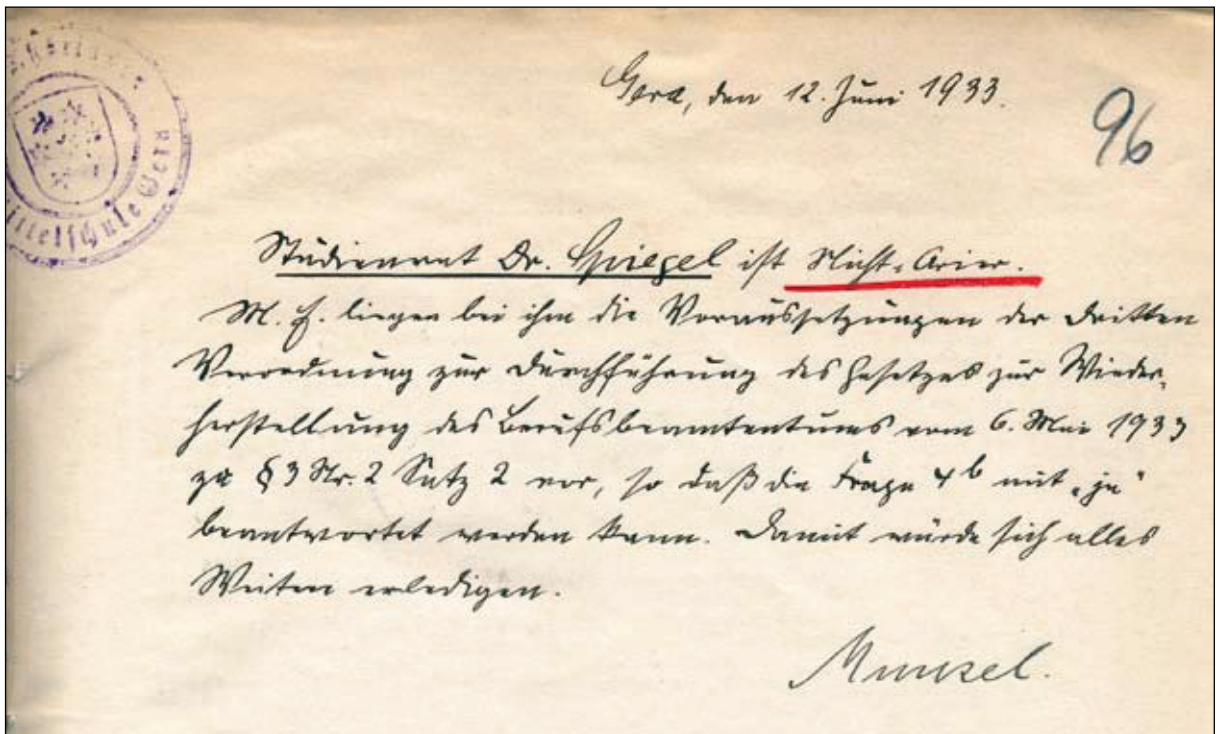 Gera, den 12. Juni 1933.
96
Mittelschule Gera
Studienrat Dr. Spiegel ist Nicht-Arier.
M. E. liegen bei ihm die Voraussetzungen der Dritten
Verordnung zur Durchführung des Gesetzes zur Wieder-
herstellung des Berufsbeamtentums vom 6. Mai 1933
zu § 3 Nr. 2 Satz 2 vor, so daß die Frage 4b mit „ja“
beantwortet werden kann. Damit würde sich alles
Weitere erledigen.